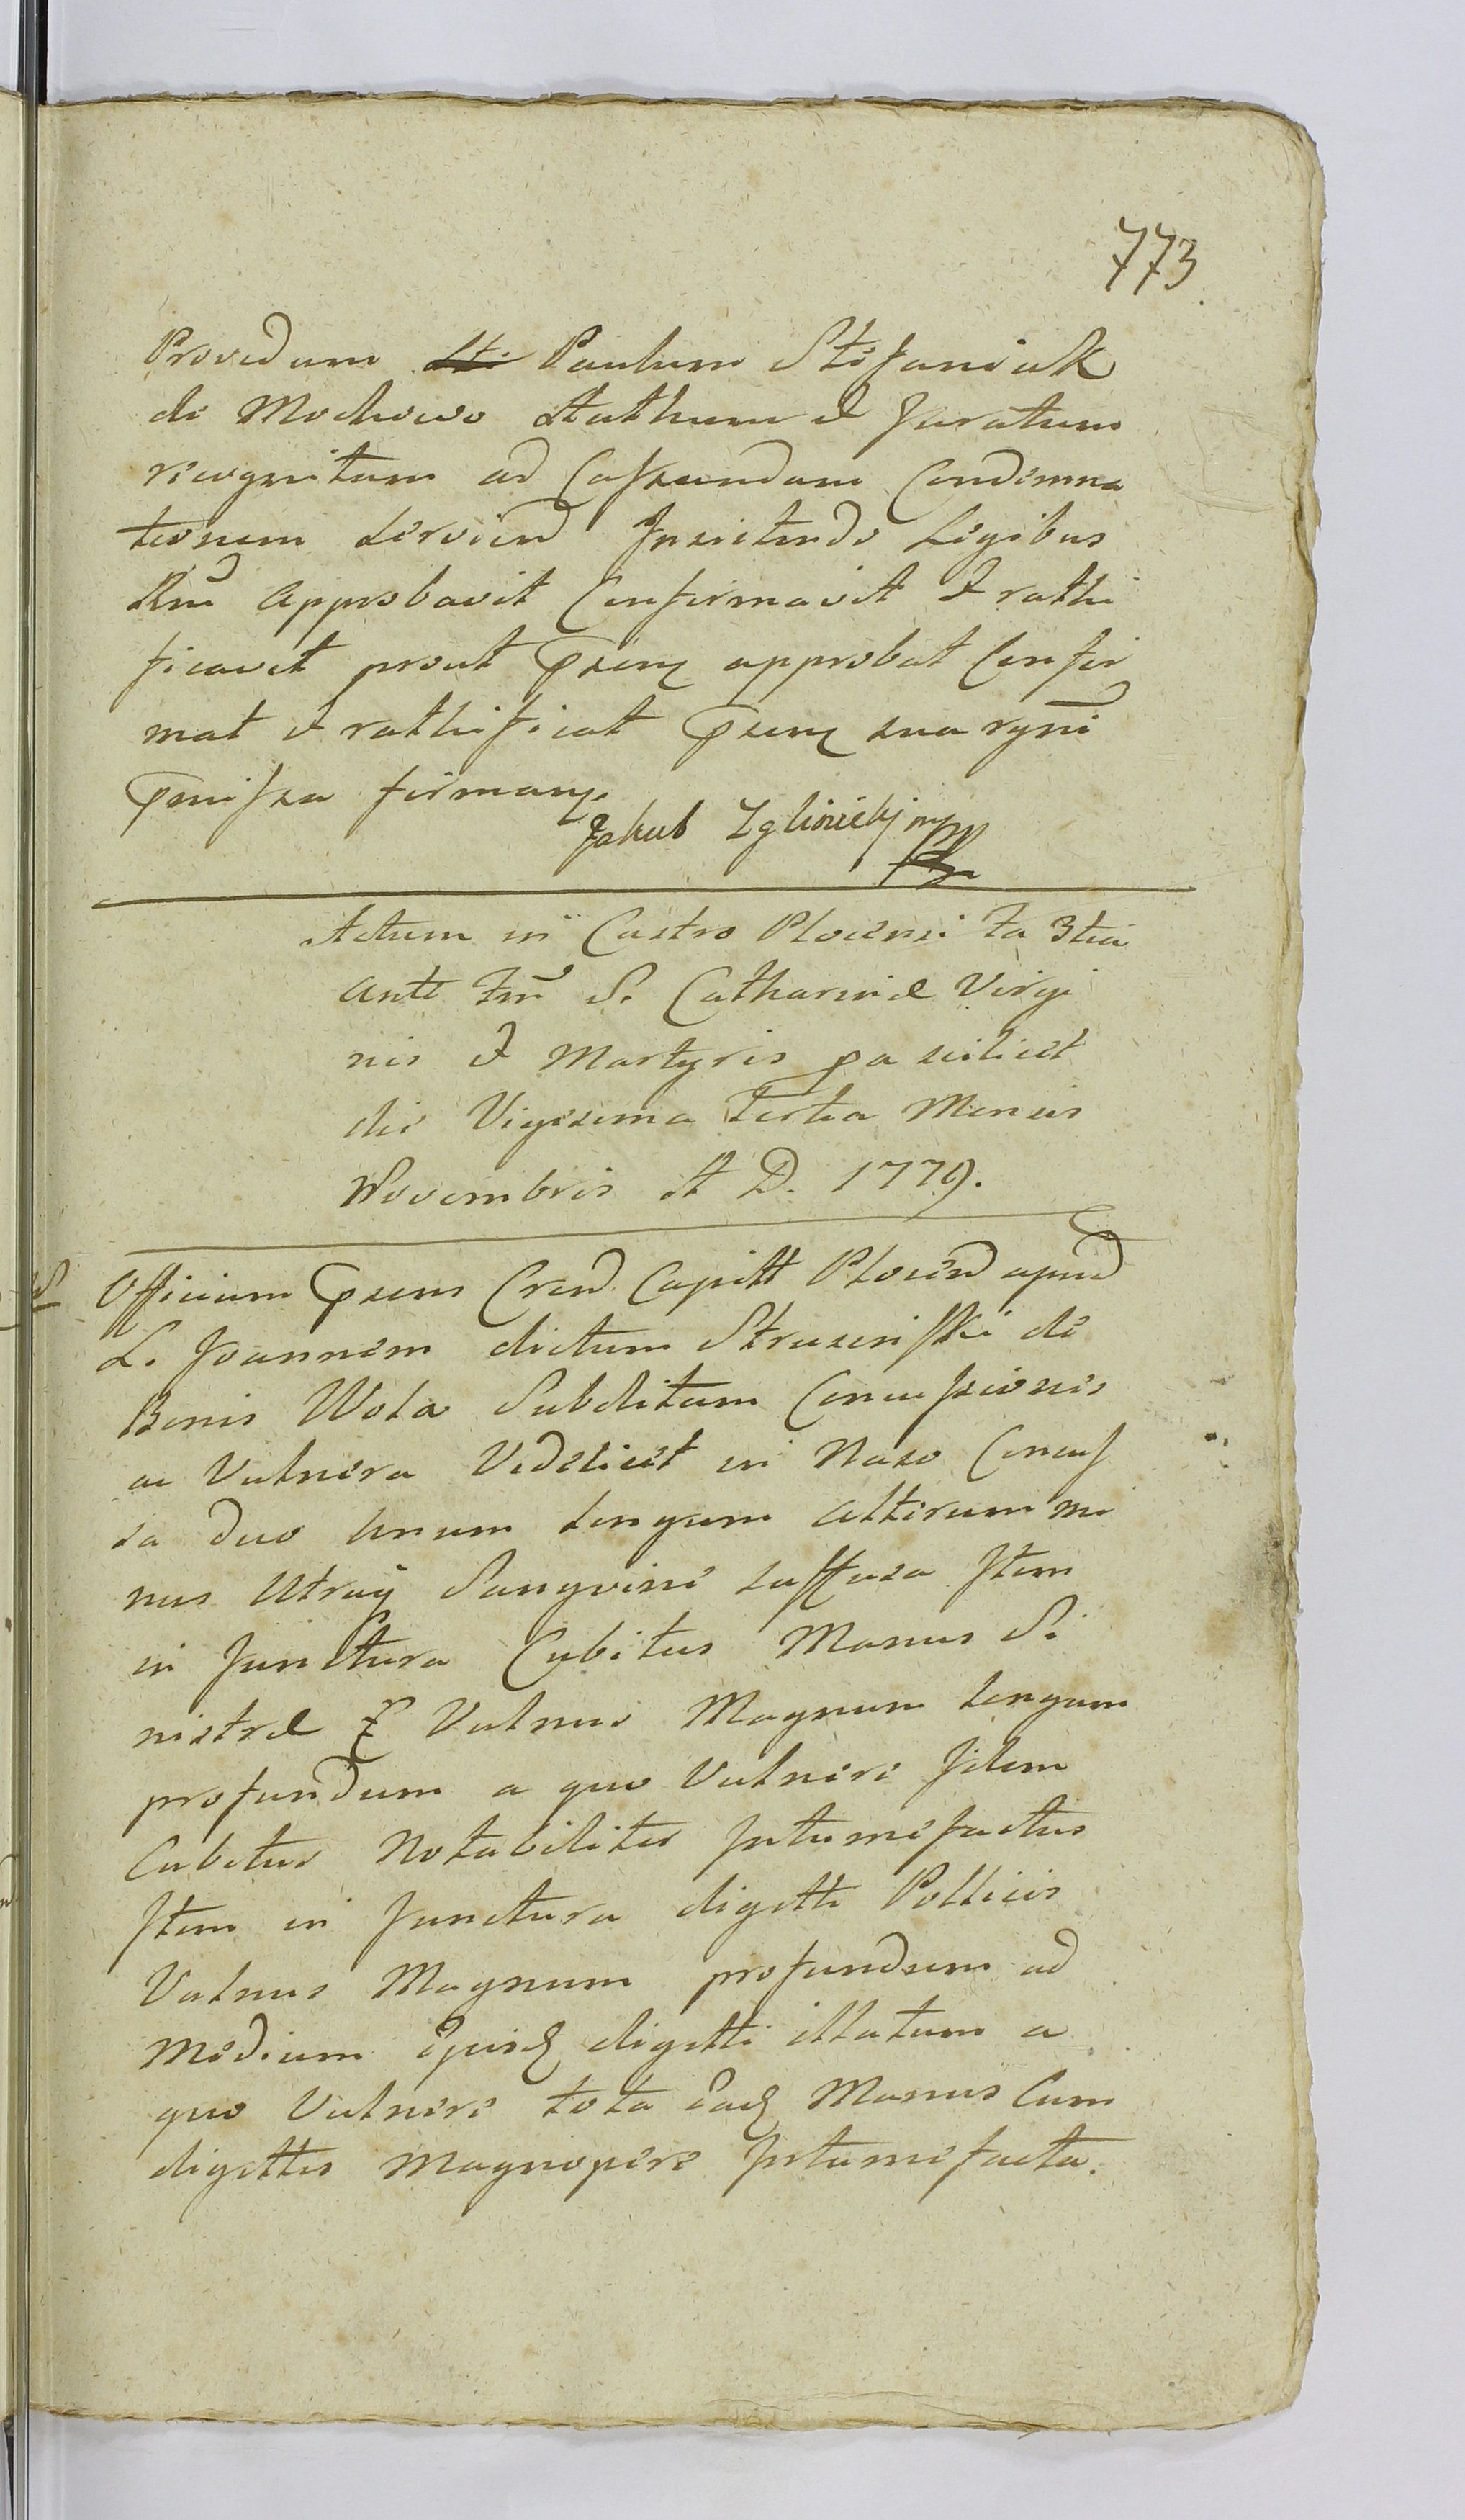 773
Providum Paulum Stefaniak
de Mochowo Acthum et Juratum
recognitum ad Cassandam Condemna
tionem Serviend Insistendo Legibus
Rni approbavit Confirmavit et rathi
ficavit prout Pseng approbat Confir
mat et rathificat Pseng sua rgni
Pmissa firmang.
Jakub Zglinickj mp
Actum in Castro Plocensi Fa 3tia
ante Fm S. Catharinae Virgi
nis et Martyris pa scilicet
die Vigesima Tertia Mensis
Novembris A D. 1779.
Officium Psens Cren. Capitt Plocen apud
L. Joannem dictum Strusinski de
Bonis Wola Subditum Concussionis
ac Vulnera Videlicet in Naso Concus
sa duo Unum longum alterum mi
nus Utraq Sangvine suffusa Item
in Junctura Cubitus Manus Si
nistrae Vulnus Magnum longum
profundum a quo Vulnere Idem
Cubitus Notabiliter Intumefactus
Item in Junctura digitti Pollicis
Vulnus Magnum profundum ad
Medium ejusd digitti illatum a
quo Vulnere tota ead Manus Cum
digittis magnopere Intumefacta.